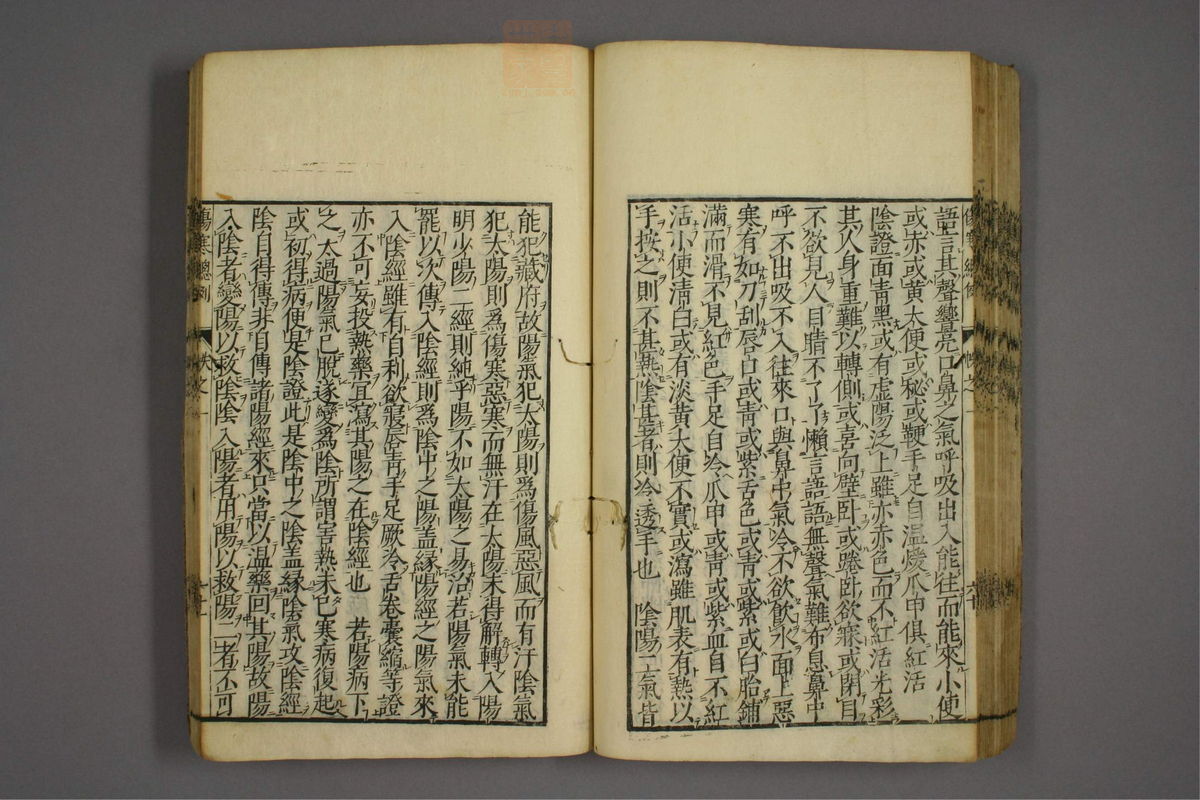 語言其聲響亮口鼻之氣呼吸出入能往而能來小便
或赤或黃大便或秘或鞕手足自溫煖爪甲俱紅活
陰證面青黑或有虛陽泛上雖亦赤色而不紅活光彩
其人身重難以轉側或喜向壁卧或蹉卧欲寐或閉目
不欲見人目睛不了了懶言語語無聲氣難布息鼻中
呼不出吸不入往來口與鼻中氣冷不欲飲水面上惡
寒有如刀刮唇口或青或紫舌色或青或紫或白胎鋪
滿而滑不見紅色手足自冷爪甲或青或紫血自不紅
活小便淸白或有淡黃大便不實或瀉雖肌表有熱以
手按之則不甚熱陰甚者則冷透手也 陰陽二氣皆
能犯藏府故陽氣犯太陽則爲傷風惡風而有汗陰氣
犯太陽則爲傷寒惡寒而無汗在太陽未得解轉入陽
明少陽二經則純乎陽不如太陽之易治若陽氣未能
罷以次傳入陰經則爲陰中之陽盖緣陽經之陽氣來
入陰經雖有自利欲寢唇青手足厥冷舌卷囊縮等證
亦不可妄投熱藥宜瀉其陽之在陰經也 若陽病下
之太過陽氣已脫遂變爲陰所謂害熱未已寒病復起
或初得病便是陰證此是陰中之陰盖緣陰氣攻陰經
陰自得傳非自傳諸陽經來只當以温藥回其陽故陽
入陰者變陽以救陰陰入陽者用陽以救陽二者不可
傷寒總例 帙之一